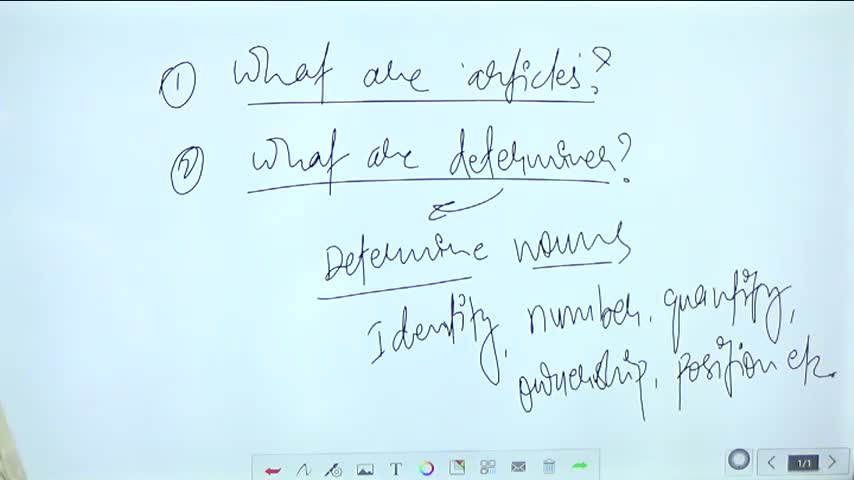 ① What are articles?
② What are determiner?
Determine nouns
Identity, number, quantity,
ownership, position etc.
T
1/1